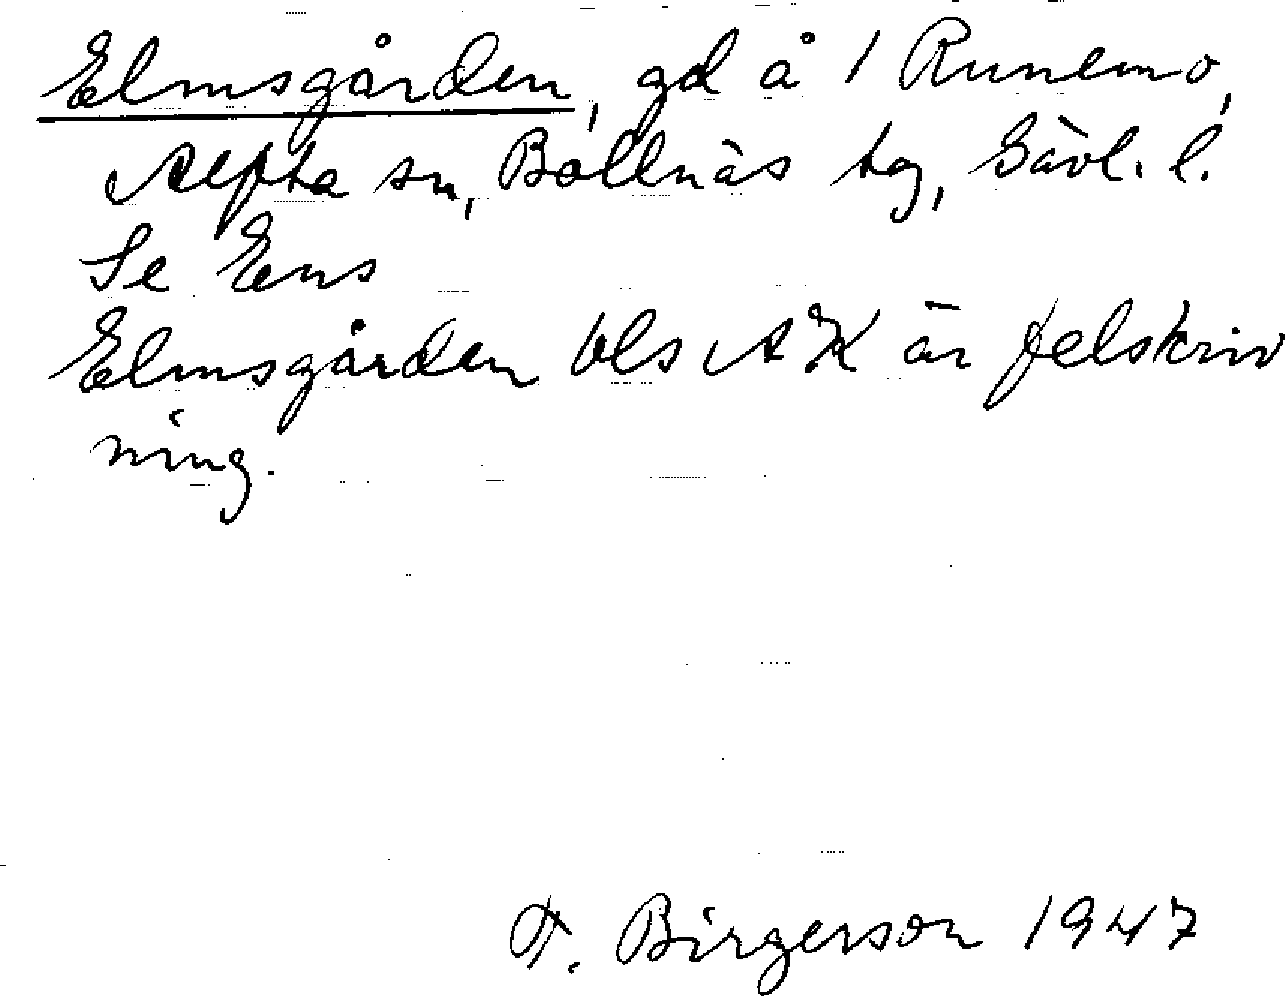 Elmsgården, gd å 1 Runemo,
Alfta sn, Bollnäs tg, Gävl. l.
Se Ens
Elmsgården bls AEK är felskriv
ning.
F. Birgerson 1947